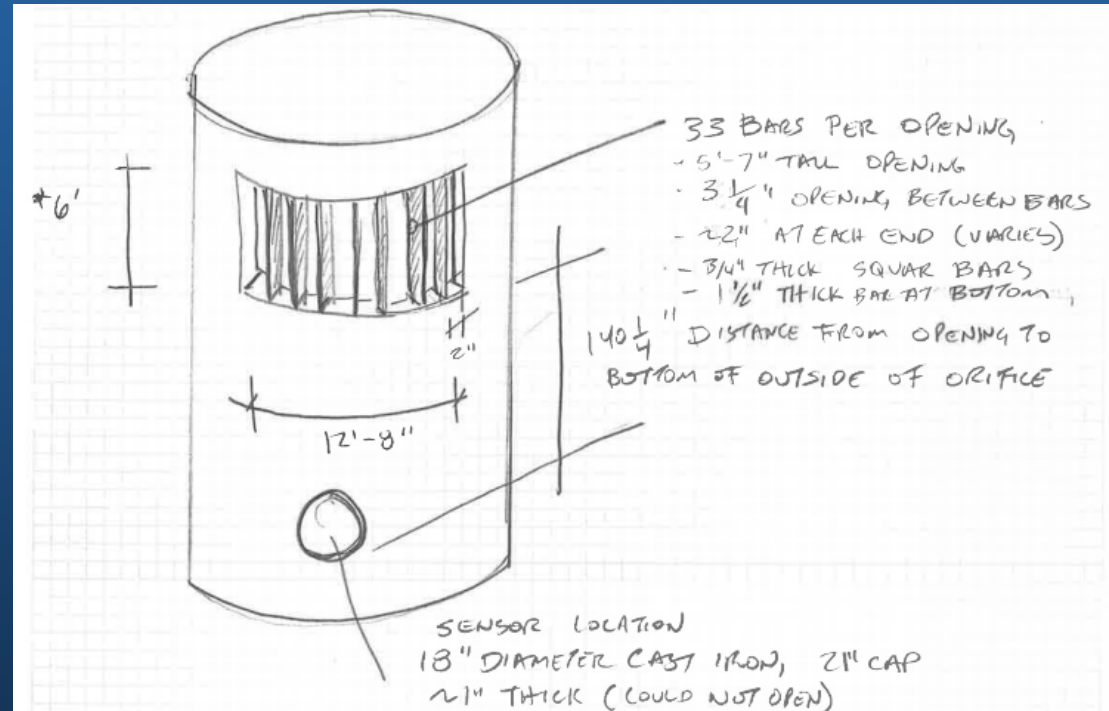 33 BARS PER OPENING
- 5'-7" TALL OPENING
- 3 1/4" OPENING BETWEEN BARS
- ~2" AT EACH END (VARIES)
- 3/4" THICK SQUAR BARS
- 1 1/2" THICK BAR AT BOTTOM
*6'
2"
140 1/4" DISTANCE FROM OPENING TO
BOTTOM OF OUTSIDE OF ORIFICE
12'-8"
SENSOR LOCATION
18" DIAMETER CAST IRON, 21" CAP
~1" THICK (COULD NOT OPEN)